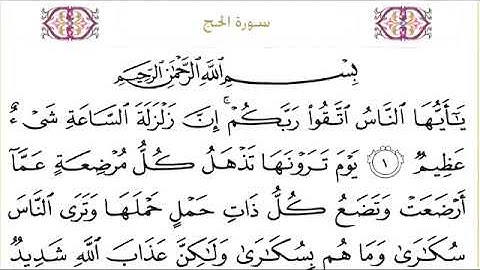 سورة الحج
بِسْمِ ٱللَّهِ ٱلرَّحْمَٰنِ ٱلرَّحِيمِ
يَٰٓأَيُّهَا ٱلنَّاسُ ٱتَّقُوا۟ رَبَّكُمْ ۚ إِنَّ زَلْزَلَةَ ٱلسَّاعَةِ شَىْءٌ
عَظِيمٌ ١ يَوْمَ تَرَوْنَهَا تَذْهَلُ كُلُّ مُرْضِعَةٍ عَمَّآ
أَرْضَعَتْ وَتَضَعُ كُلُّ ذَاتِ حَمْلٍ حَمْلَهَا وَتَرَى ٱلنَّاسَ
سُكَٰرَىٰ وَمَا هُم بِسُكَٰرَىٰ وَلَٰكِنَّ عَذَابَ ٱللَّهِ شَدِيدٌ